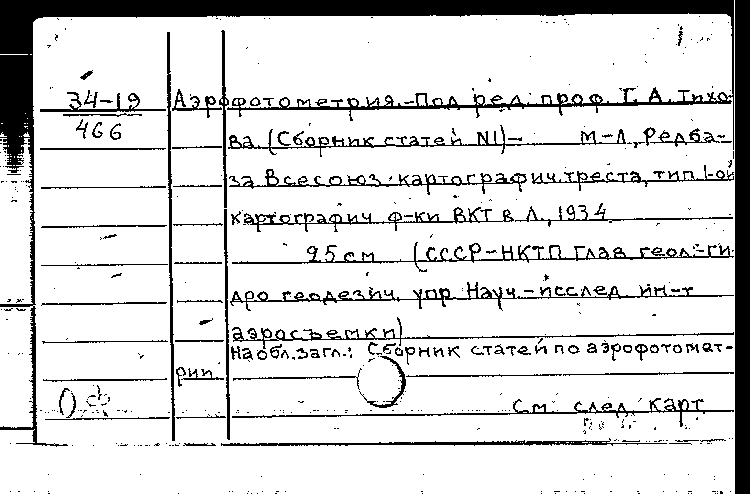 34-19
466
Аэрофотометрия.-Под ред. проф. Г. А. Тихо-
ва. (Сборник статей N1)- М-Л, Редба-
за Всесоюз. картографич. треста, тип 1-ой
картографич. ф-ки ВКТ в Л., 1934
25 см (СССР-НКТП Глав геол.-ги-
дро геодезич. упр Науч.-исслед. ин-т
аэросъемки)
На обл. загл.: Сборник статей по аэрофотомет-
рии.
См. след. карт.